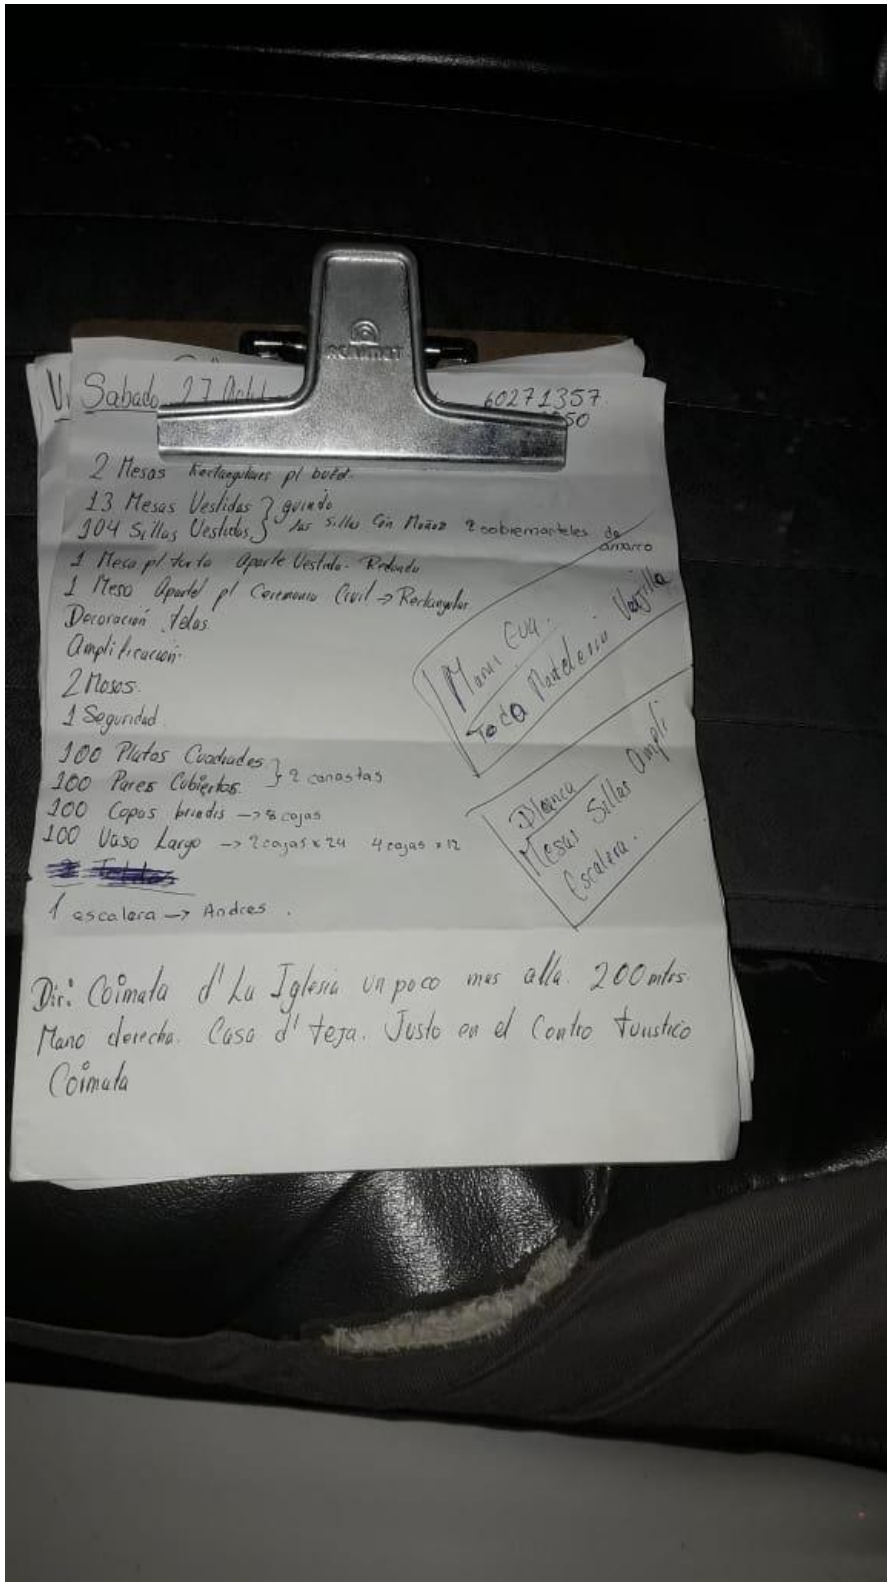 Sabado 27
60271357
50
2 Mesas Rectangulares p/ bufet.
13 Mesas Vestidas } guindo
104 Sillas Vestidas } las sillas con Moños 2 sobremanteles de
amarro
1 Mesa p/ torta Aparte Vestida - Redonda
1 Mesa Aparte p/ Ceremonia Civil → Rectangular
Decoración telas
Amplificación.
2 Mosos.
1 Seguridad.
100 Platos Cuadrados }
100 Pares Cubiertos. } 2 canastas
100 Copas brindis → 8 cajas
100 Vaso Largo → 2 cajas x 24 4 cajas x 12
1 escalera → Andres.
Mami Eva.
Toda Manteleria Vajilla
Blanca
Mesas Sillas Ampli
Escalera.
Dir: Coimata d' La Iglesia un poco mas alla. 200 mtrs.
Mano derecha. Casa d' teja. Justo en el Centro turistico
Coimata